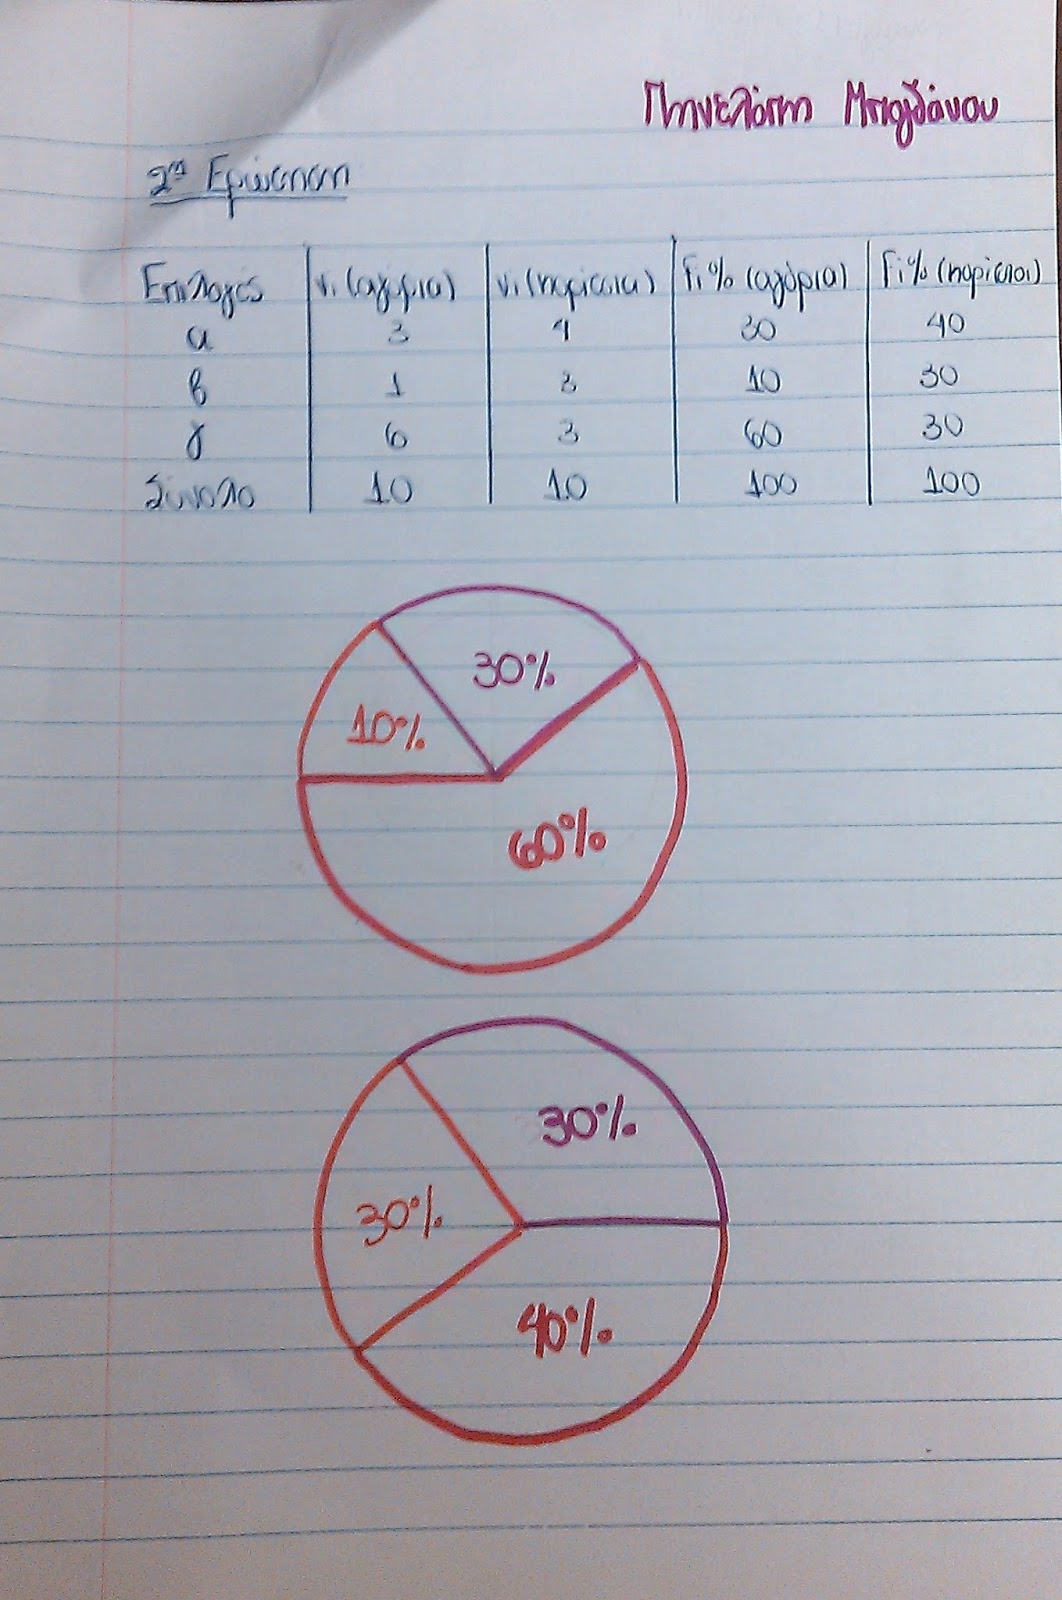 Πηνελόπη Μπογδάνου
2η Ερώτηση
Επιλογές νi (αγόρια) νi (κορίτσια) Fi% (αγόρια) Fi% (κορίτσι)
α 3 4 30 40
β 1 3 10 30
γ 6 3 60 30
Σύνολο 10 10 100 100
30%
10%
60%
30%
30%
40%